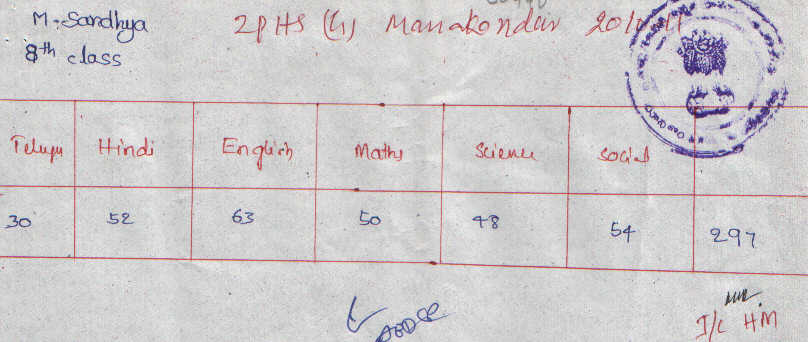 M. Sandhya
8th class
ZPHS (G) Manakondur 2010-11
Telugu Hindi English Maths Science Social
30 52 63 50 48 54 297
I/c HM